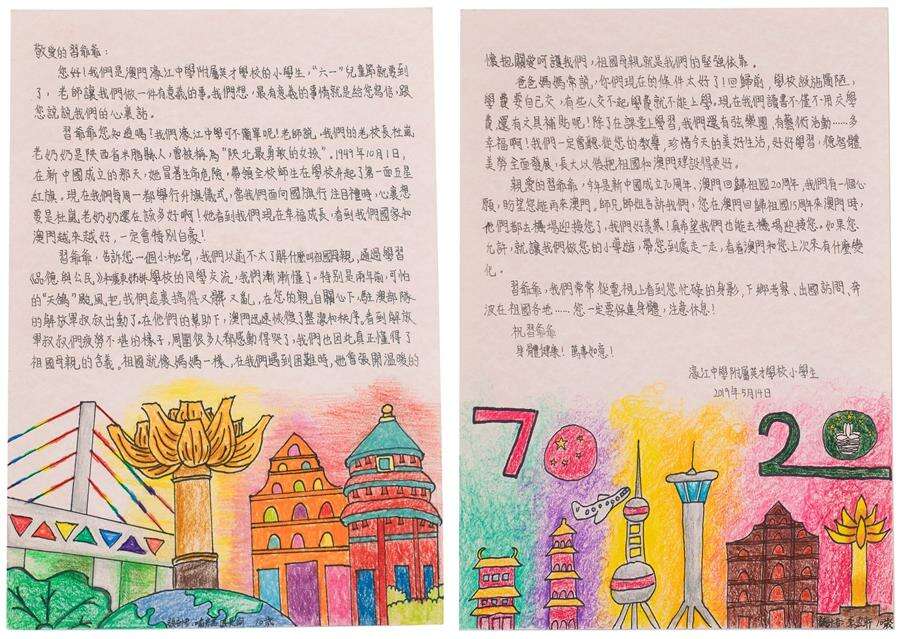 敬愛的習爺爺：
您好！我們是澳門濠江中學附屬英才學校的小學生，“六一”兒童節就要到
了，老師讓我們做一件有意義的事。我們想，最有意義的事情就是給您寫信，跟
您說說我們的心裏話。
習爺爺您知道嗎？我們濠江中學可不簡單呢！老師說，我們的老校長杜嵐
老奶奶是陝西省米脂縣人，曾被稱為“陝北最勇敢的女孩”。1949年10月1日，
在新中國成立的那天，她冒着生命危險，帶領全校師生在學校升起了第一面五星
紅旗。現在我們每周一都舉行升旗儀式，當我們面向國旗行注目禮時，心裏想
要是杜嵐老奶奶還在該多好啊！他看到我們現在幸福成長，看到我們國家和
澳門越來越好，一定會特別自豪！
習爺爺，告訴您一個小秘密，我們以前不太了解什麼叫祖國母親，通過學習
《品德與公民》和學校的同學交流，我們漸漸懂了。特別是兩年前，可怕
的“天鴿”颱風把我們這裏搞得又髒又亂，在您的親自關心下，駐澳部隊
的解放軍叔叔出動了。在他們的幫助下，澳門迅速恢復了整潔和秩序。看到解放
軍叔叔們疲勞不堪的樣子，周圍很多人都感動得哭了，我們也因此真正懂得了
祖國母親的含義。祖國就像媽媽一樣，在我們遇到困難時，她會張開溫暖的
懷抱關愛呵護我們，祖國母親就是我們的堅強依靠。
爸爸媽媽常說，你們現在的條件太好了！回歸前，學校設施簡陋，
學費要自己交，有些人交不起學費就不能上學。現在我們讀書不僅不用交學
費，還有文具補貼呢！除了在課堂上學習，我們還有弦樂團，有藝術活動……多
幸福啊！我們一定會聽從您的教導，珍惜今天的美好生活，好好學習，德智體
美勞全面發展，長大以後把祖國和澳門建設得更好。
親愛的習爺爺，今年是新中國成立70周年、澳門回歸祖國20周年，我們有一個心
願，盼望您能再來澳門。師兄師姐告訴我們，您在澳門回歸祖國15周年來澳門時，
他們都去機場迎接您了，他們好羡慕！真希望我們也能去機場迎接您。如果您
允許，就讓我們做您的小導遊，帶您到處走一走，看看澳門和您上次來有什麼變
化。
習爺爺，我們常常從電視上看到您忙碌的身影，下鄉考察、出國訪問、奔
波在祖國各地……您一定要保重身體，注意休息！
祝習爺爺
身體健康！萬事如意！
濠江中學附屬英才學校小學生
2019年5月14日
70
20